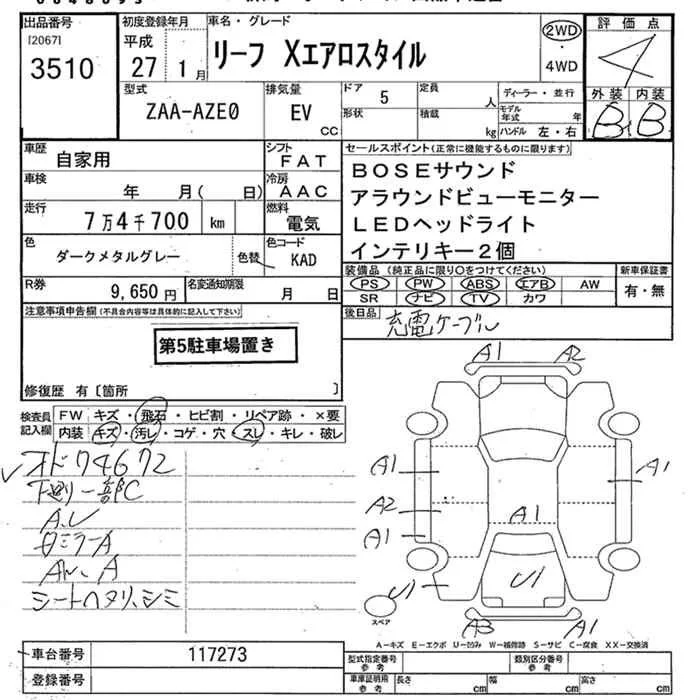 出品番号
[2067]
3510
初度登録年月
平成
27 1月
車名・グレード
リーフ Xエアロスタイル
2WD
・
4WD
評価点
4
外装 内装
B B
型式
ZAA-AZE0
排気量
EV
CC
ドア 5
形状
定員 人
積載 kg
ディーラー・並行
モデル年式 年
ハンドル 左・右
車歴
自家用
シフト
FAT
車検
年 月( 日)
冷房
AAC
走行
7万4千700 km
燃料
電気
色
ダークメタルグレー
色替
色コード
KAD
R券
9,650円
名変通知期限
月 日
セールスポイント(正常に機能するものに限ります)
BOSEサウンド
アラウンドビューモニター
LEDヘッドライト
インテリキー2個
装備品(純正品に限り○をつけてください)
新車保証書
PS PW ABS エアB AW
SR ナビ TV カワ
有・無
後日品
充電ケーブル
注意事項申告欄(不具合内容等は具体的に記入して下さい)
第5駐車場置き
修復歴 有〔箇所 〕
検査員
記入欄
FW キズ・飛石・ヒビ割・リペア跡・×要
内装 キズ・汚レ・コゲ・穴・スレ・キレ・破レ
オド74672
下廻り一部C
A.U
Cミラー A
AW. A
シートヘタリ、シミ
A1 A2
A1 A1
A2
A1
A1
U1 U1
A3 A1
スペア
A-キズ E-エクボ U-凹み W-補修跡 S-サビ C-腐食 XX-交換済
車台番号
117273
登録番号
型式指定番号
参考
類別区分番号
参考
車庫証明用
参考
長さ cm 幅 cm 高さ cm